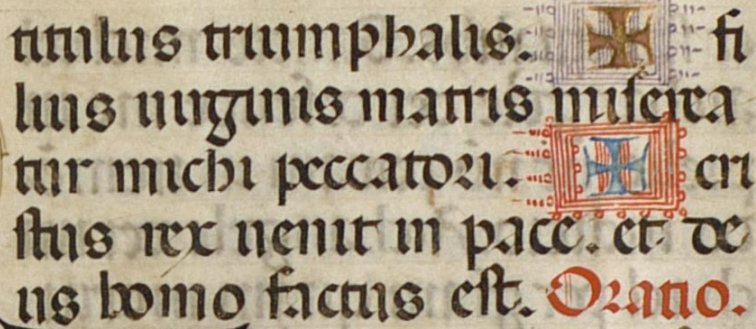 titulus triumphalis. ✠ fi
lius uirginis matris miserea
tur michi peccatori. ✠ cri
stus rex uenit in pace. et de
us homo factus est. Oratio.